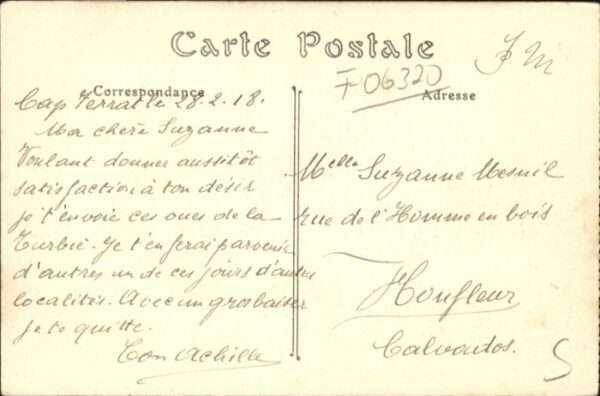 Carte Postale
F M
F06320
Correspondance
Adresse
Cap Ferrat le 28.2.18.
Ma chère Suzanne
Voulant donner aussitôt
satisfaction à ton désir
je t'envoie ces vues de la
Turbie. Je t'en ferai parvenir
d'autres un de ces jours d'autres
localités. Avec un gros baiser
je te quitte.
Ton Achille
Melle Suzanne Mesnil
rue de l'Homme en bois
Honfleur
Calvados.
5